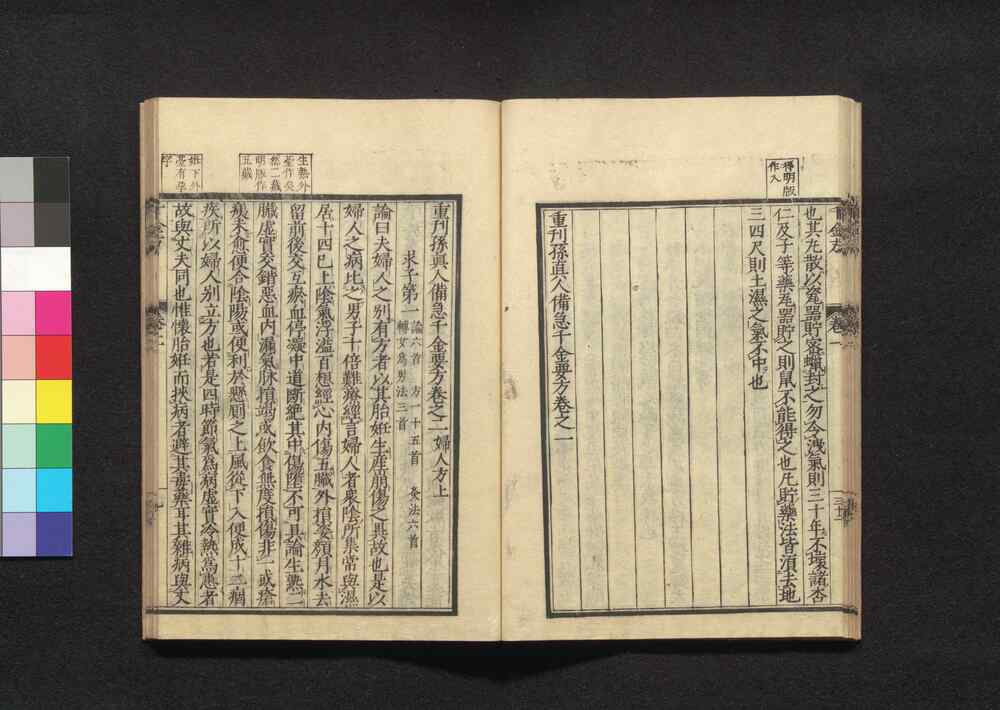 得明版
作入
也其丸散以瓷器貯密蠟封之勿令洩氣則三十年不壞諸杏
仁及子等藥瓦器貯之則鼠不能得之也凡貯藥法皆須去地
三四尺則土濕之氣不中也
重刊孫真人備急千金要方卷之一
重刊孫真人備急千金要方卷之二 婦人方上
求子第一 論六首 方一十五首 灸法六首
轉女為男法三首
論曰夫婦人之別有方者以其胎妊生產崩傷之異故也是以
婦人之病比之男子十倍難療經言婦人者衆陰所集常與濕
居十四已上陰氣浮溢百想經心內傷五臟外損姿顏月水去
留前後交互瘀血停凝中道斷絕其中傷墮不可具論生熟二
臟虛實交錯惡血內漏氣脉損竭或飲食無度損傷非一或瘡
痍未愈便合陰陽或便利於懸厠之上風從下入便成十二痼
疾所以婦人別立方也若是四時節氣為病虛實冷熱為患者
故與丈夫同也惟懷胎妊而挾病者避其毒藥耳其雜病與丈
生熟外
臺作矣
然二藏
明版作
五藏
妊下外
臺有孕
字